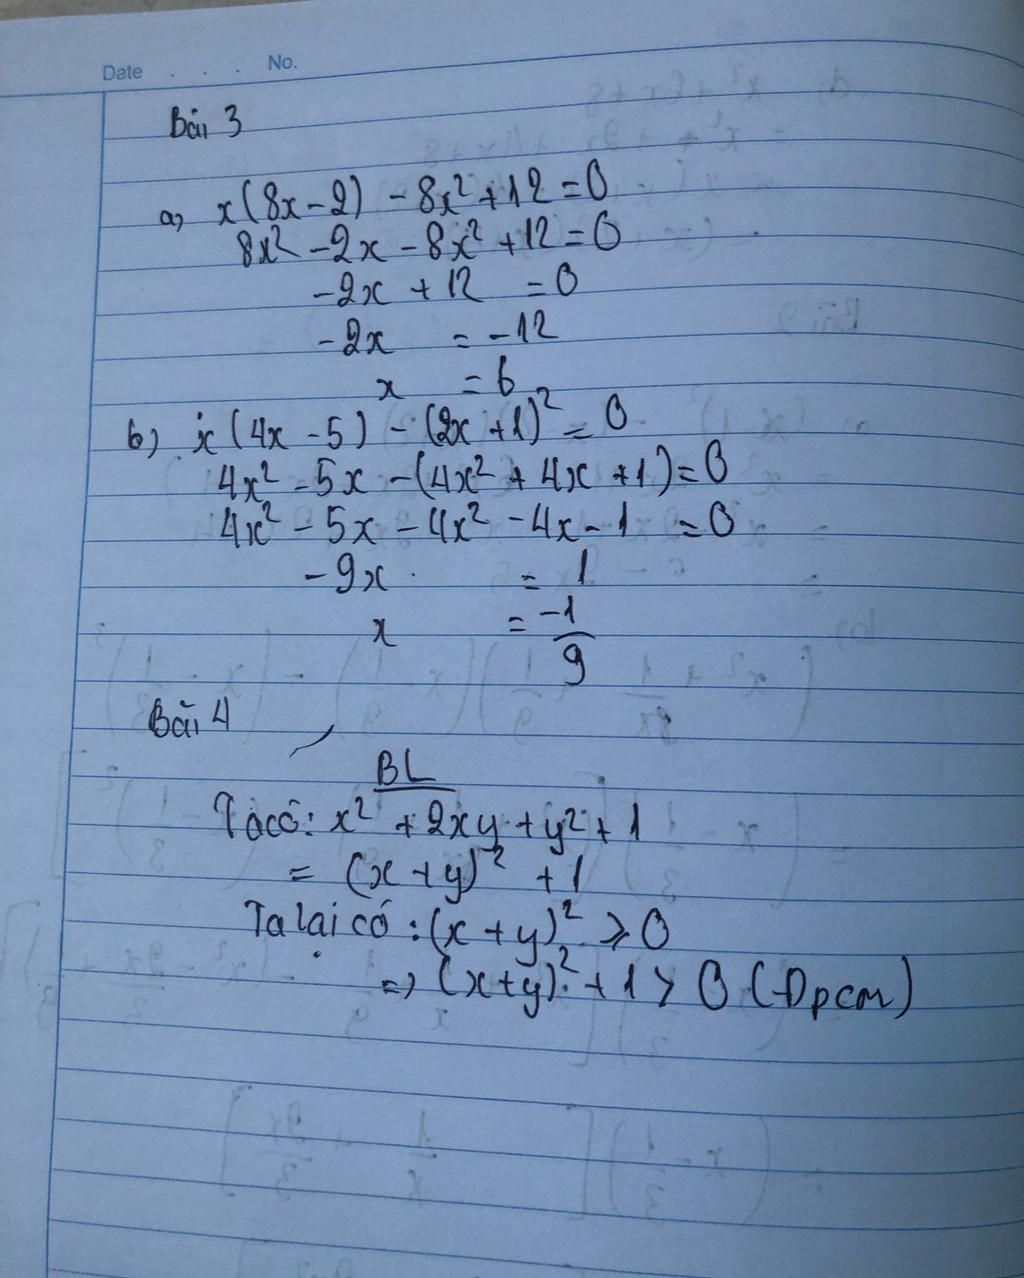 Date . . . No.
Bài 3
a, x(8x-2) - 8x² + 12 = 0
8x² - 2x - 8x² + 12 = 0
-2x + 12 = 0
-2x = -12
x = 6
b, x(4x-5) - (2x+1)² = 0
4x² - 5x - (4x² + 4x + 1) = 0
4x² - 5x - 4x² - 4x - 1 = 0
-9x = 1
x = -1/9
Bài 4
BL
Ta có: x² + 2xy + y² + 1
= (x+y)² + 1
Ta lại có: (x+y)² ⩾ 0
=> (x+y)² + 1 > 0 (Đpcm)